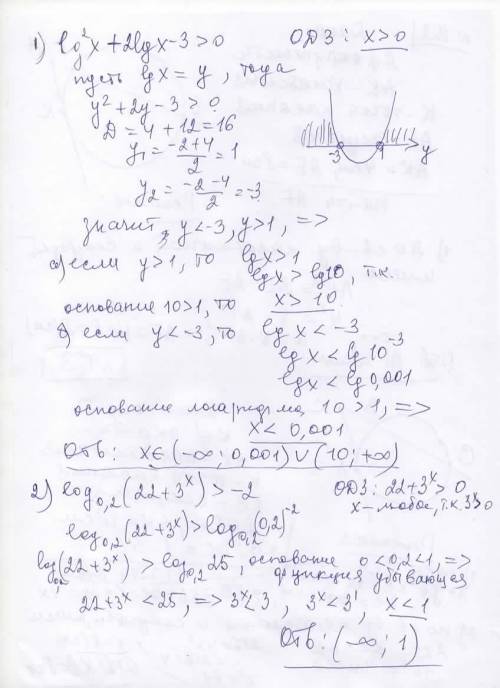 1) lg²x + 2lgx - 3 > 0 ОДЗ: x>0
пусть lg x = y, тогда
y² + 2y - 3 > 0
D = 4 + 12 = 16
y₁ = (-2+4)/2 = 1
-3 1 y
y₂ = (-2-4)/2 = -3
значит, y < -3, y > 1, =>
а) если y > 1, то lg x > 1
lg x > lg 10, т.к
основание 10 > 1, то x > 10
б) если y < -3, то lg x < -3
lg x < lg 10⁻³
lgx < lg 0,001
основание логарифма 10 > 1, =>
x < 0,001
Отв: x ∈ (-∞; 0,001) ∪ (10; +∞)
2) log₀,₂(22+3ˣ) > -2 ОДЗ: 22+3ˣ > 0
x - любое, т.к. 3ˣ>0
log₀,₂(22+3ˣ) > log₀,₂(0,2)⁻²
log₀,₂(22+3ˣ) > log₀,₂ 25, основание 0<0,2<1, =>
функция убывающая
22+3ˣ < 25, => 3ˣ < 3, 3ˣ < 3¹, x < 1
Отв: (-∞; 1)